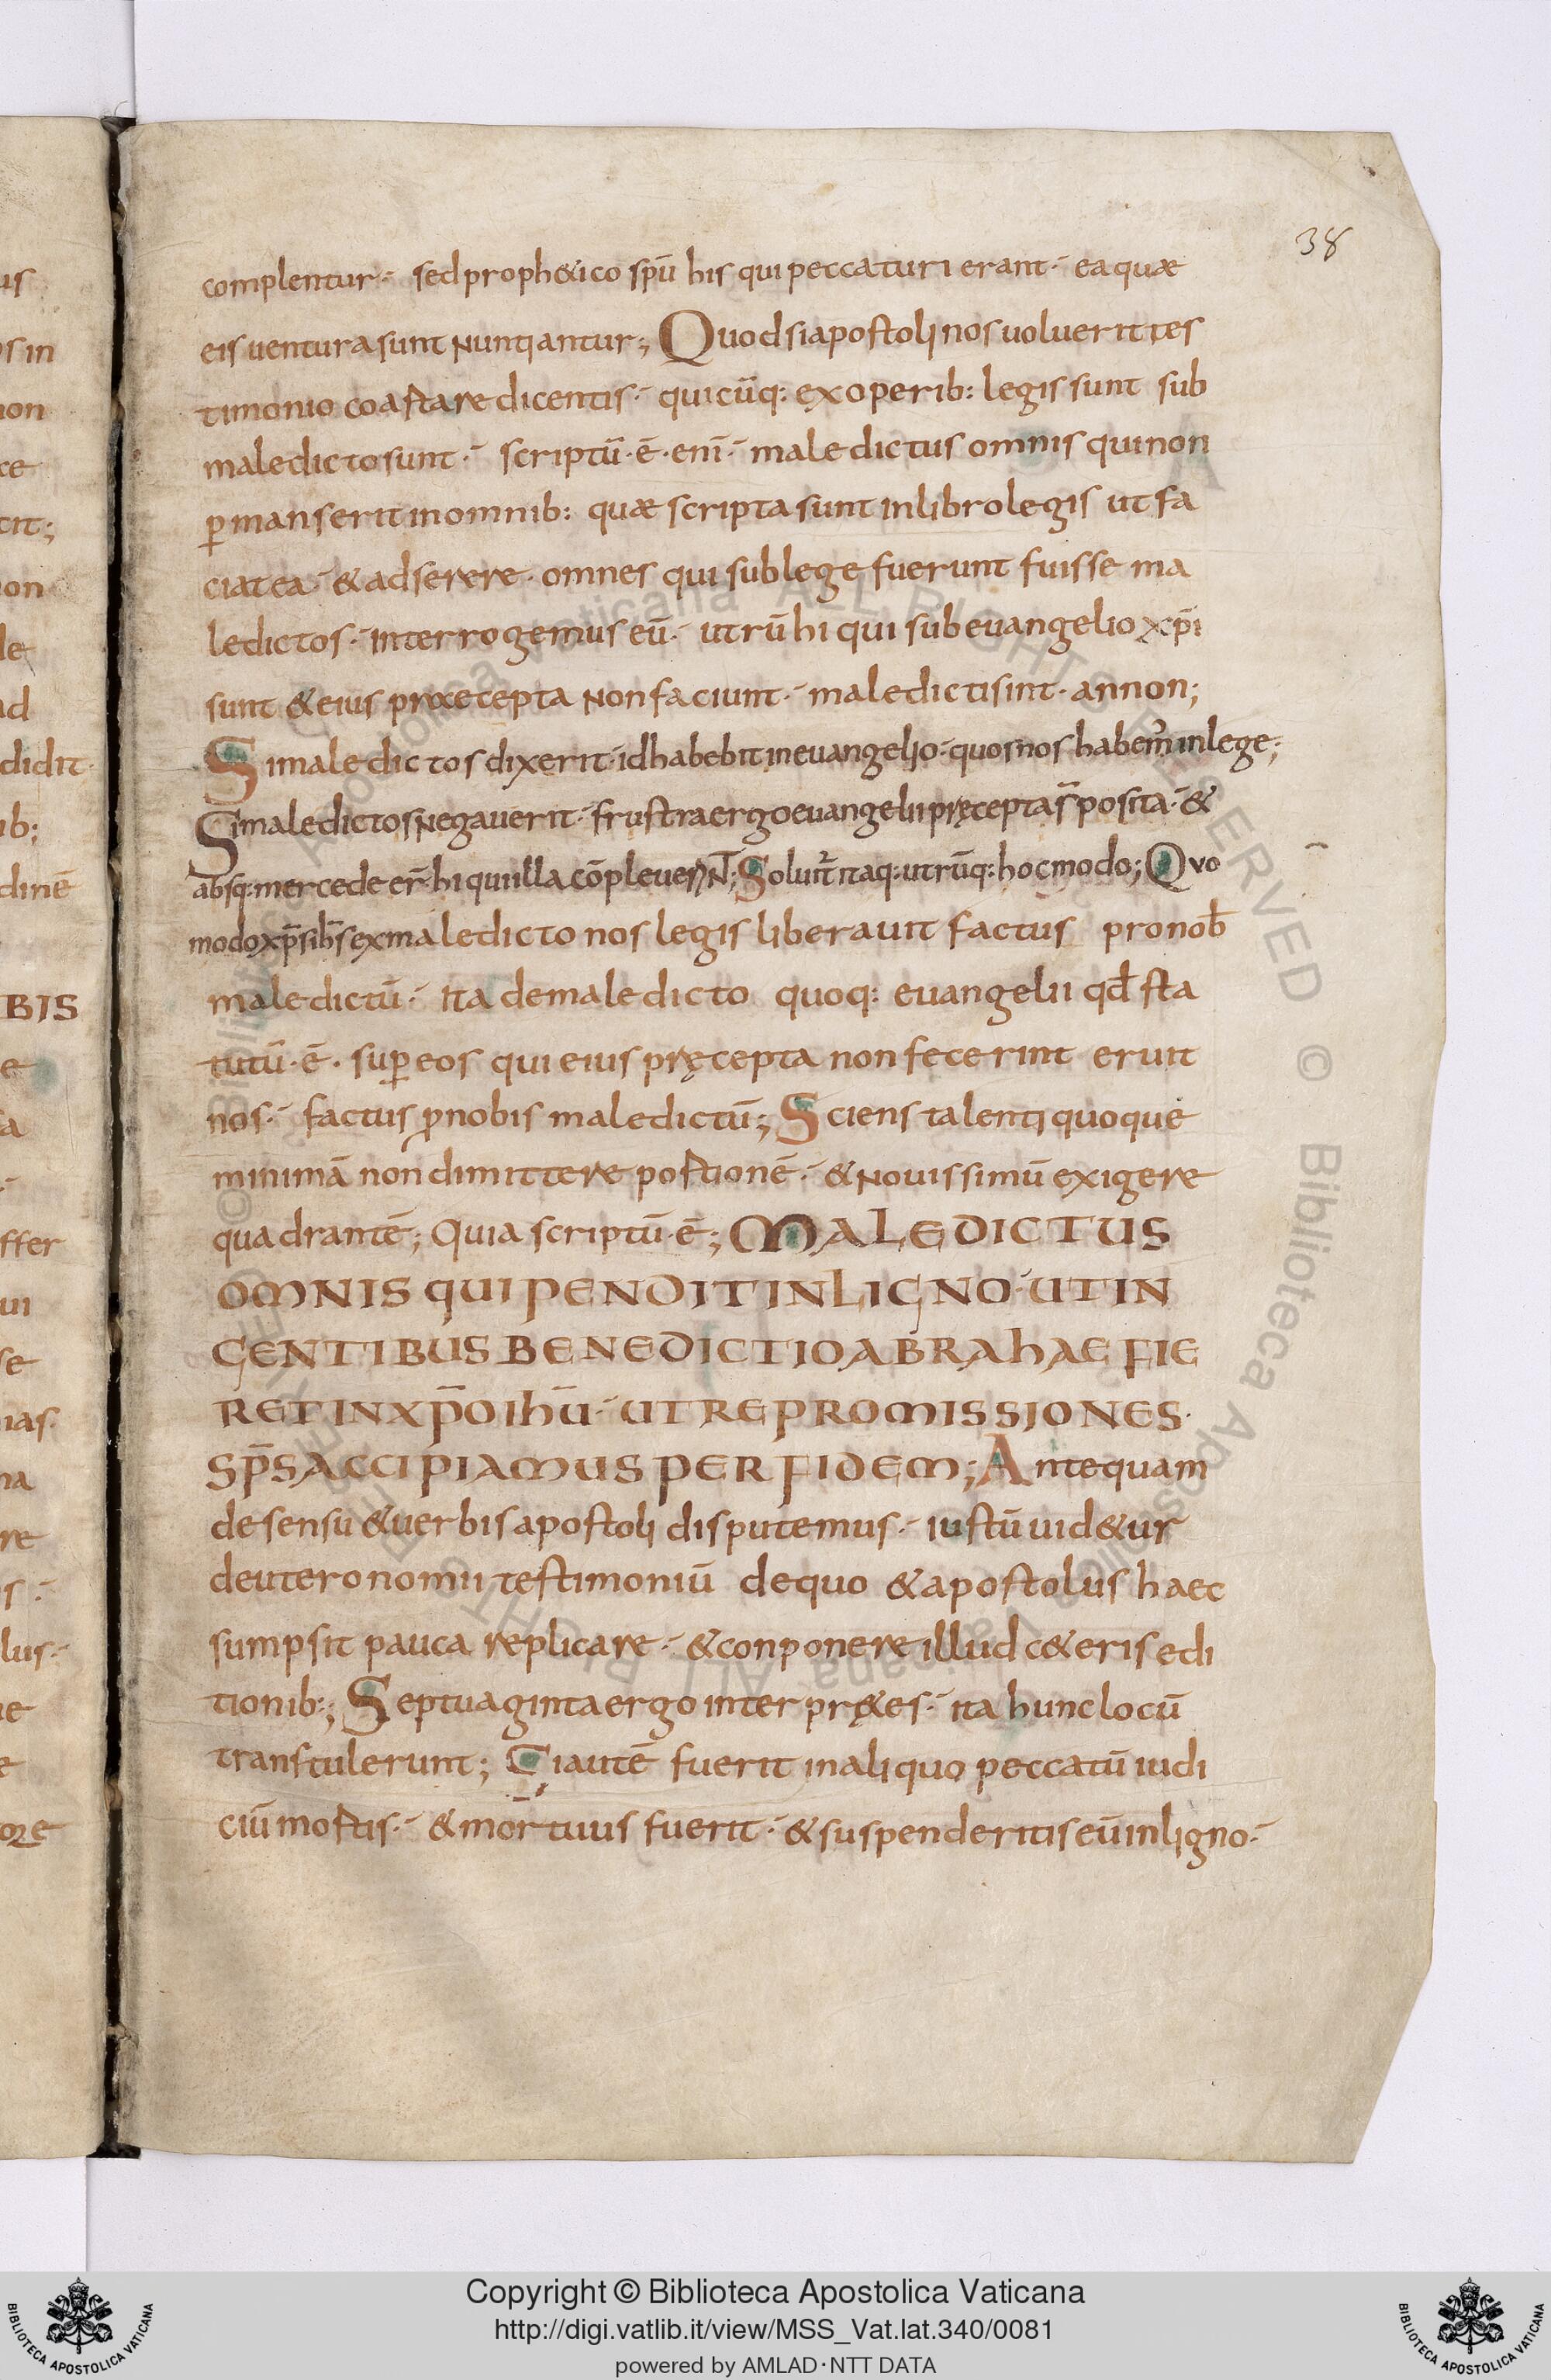 38
complentur·- sed proph&ico sp̄u his qui peccaturi erant·- ea quæ
eis uentura sunt nuntiantur; Quod si apostoli nos uoluerit tes
timonio coartare dicentis·- quicūq: ex operib: legis sunt sub
maledicto sunt·- scriptū·ē·enī·- maledictus omnis qui non
ꝑmanserit in omnib: quæ scripta sunt in libro legis ut fa
ciat ea·- & adserere· omnes qui sub lege fuerunt fuisse ma
ledictos·- interrogemus eū·- utrū hi qui sub euangelio xp̄i
sunt & eius præcepta non faciunt·- maledicti sint· annon;
Si maledictos dixerit·- id habebit in euangelio·- quos nos habem̄ in lege;
Si maledictos negauerit·- frustra ergo euangelii pręcepta s̄ posita·- &
absq: mercede er̄·- hi qui illa cōpleuerNT; Soluit̄ itaq: utrūq: hoc modo; Quo
modo xp̄s ih̄s ex maledicto nos legis liberauit factus pro nob̄
maledictū·- ita de maledicto quoq: euangelii qd̄ sta
tutū·ē· suꝑ eos qui eius pręcepta non fecerint eruit
nos·- factus ꝓ nobis maledictū; Sciens talenti quoque
minimā non dimittere portionē·- & nouissimū exigere
quadrantē; Quia scriptū·ē; MALEDICTUS
OMNIS QUI PENDIT IN LIGNO·- UT IN
GENTIBUS BENEDICTIO ABRAHAE FIE
RET IN XP̄O IHŪ·- UT REPROMISSIONES·
SP̄S ACCIPIAMUS PER FIDEM; Antequam
de sensu & uerbis apostoli disputemus·- iustū uid&ur
deuteronomii testimoniū de quo & apostolus haec
sumpsit pauca replicare·- & conponere illud c&eris edi
tionib:; Septuaginta ergo interpr&es·- ita hunc locū
transtulerunt; Si autē fuerit in aliquo peccatū iudi
ciū mortis·- & mortuus fuerit·- & suspenderitis eū in ligno·-
us
s in
non
ce
tit;
non
le
ad
didit·
ib;
dinē
BIS
e
a
ffer
ui
se
ias·
na
re
lus·-
ore
Copyright © Biblioteca Apostolica Vaticana
http://digi.vatlib.it/view/MSS_Vat.lat.340/0081
powered by AMLAD·NTT DATA
BIBLIOTECA APOSTOLICA VATICANA
BIBLIOTECA APOSTOLICA VATICANA